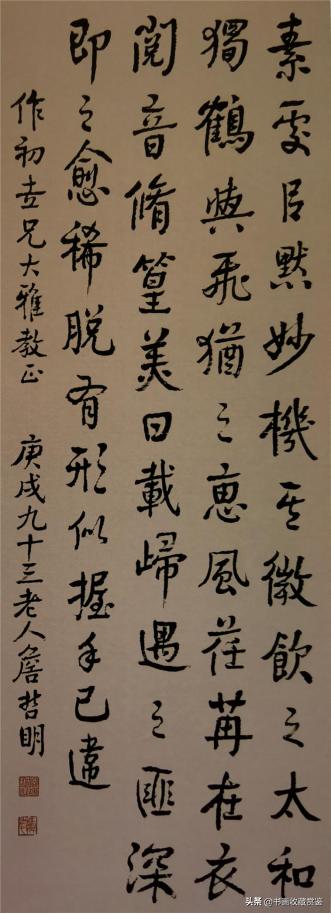 素處以默妙機其微飲之太和
獨鶴與飛猶之惠風荏苒在衣
閱音脩篁美曰載歸遇之匪深
即之愈稀脫有形似握手已違
作初兄大雅教正 庚戌九十三老人詹哲明
头条 @书画收藏赏鉴